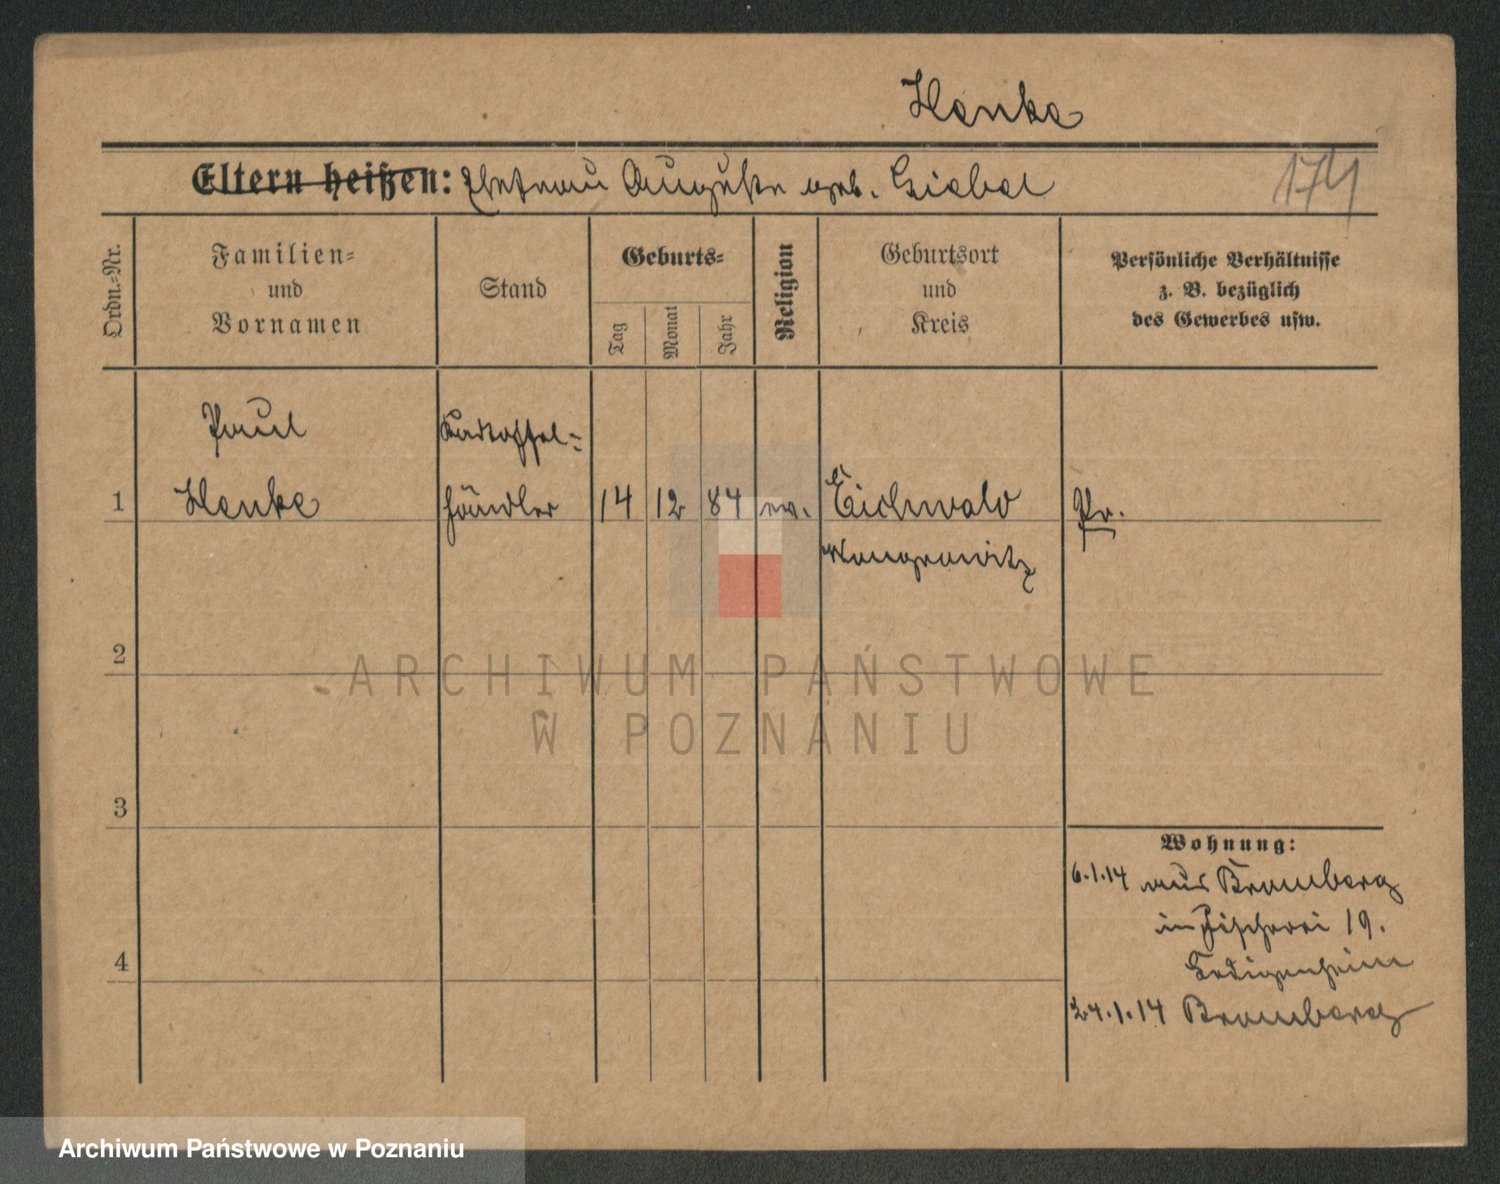 Henke
Eltern heißen: Ehefrau Auguste geb. Giebel
174
Ordn.-Nr.
Familien-
und
Vornamen
Stand
Geburts-
Tag
Monat
Jahr
Religion
Geburtsort
und
Kreis
Persönliche Verhältnisse
z. B. bezüglich
des Gewerbes usw.
Paul
Kartoffel-
1 Henke händler 14 12 84 ev. Eichwald Pr.
Wongrowitz
2
ARCHIWUM PAŃSTWOWE
W POZNANIU
3
Wohnung:
6.1.14 aus Bromberg
in Fischerei 19.
4
Ledigenheim
24.1.14 Bromberg
Archiwum Państwowe w Poznaniu